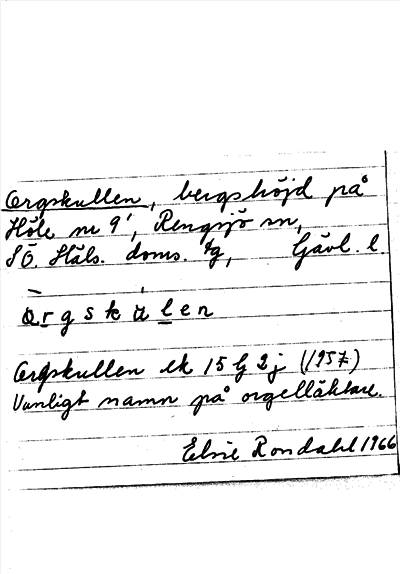 Orgskullen, bergshöjd på
Höle nr 9', Rengsjö sn,
SÖ. Häls. doms. tg, Gävl. l.
orgskulen
Orgskullen ek 15 G 2 j (1957)
Vanligt namn på orgelläktare.
Elsie Rondahl 1966